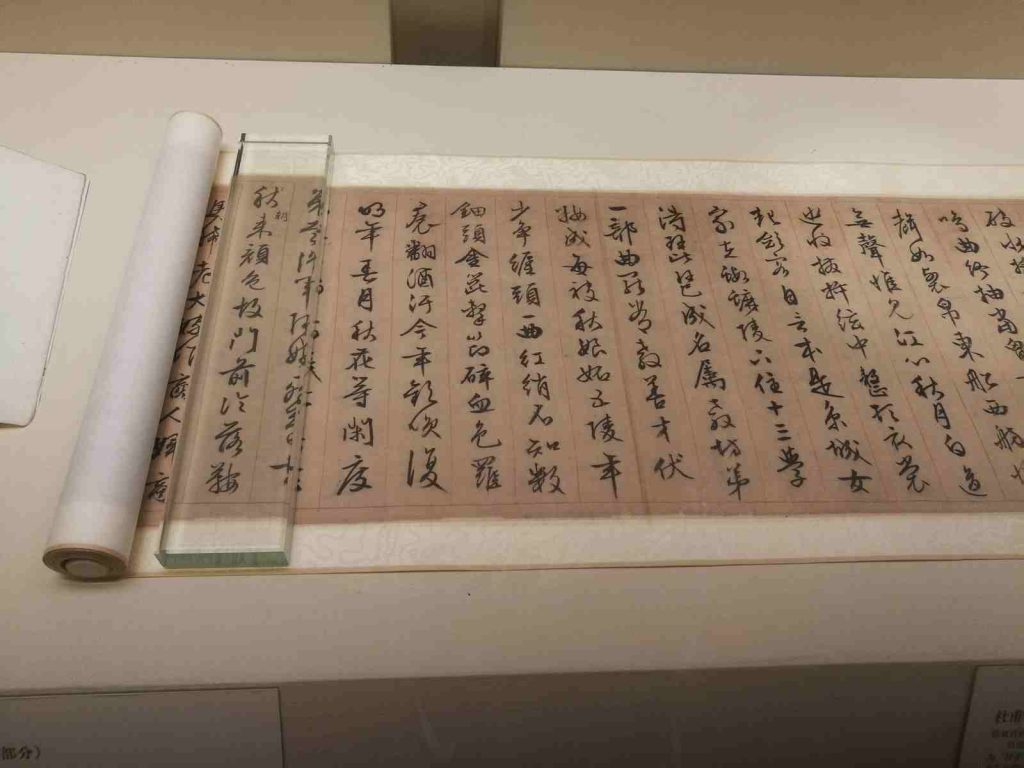 鳴曲終抽當
聲如裂帛東船西舫悄
無聲惟見江心秋月白沉
吟收撥插絃中整頓衣裳
起斂容自言本是京城女
家在蝦蟆陵下住十三學
得琵琶成名屬教坊第
一部曲罷常教善才伏
粧成每被秋娘妬五陵年
少爭纏頭一曲紅綃不知數
鈿頭金篦擊節碎血色羅
裙翻酒汙今年歡笑復
明年春月秋花等閑度
弟走從軍阿姨死
秋朝來顏色故門前冷落鞍
老大嫁作商人婦
部分）
杜甫